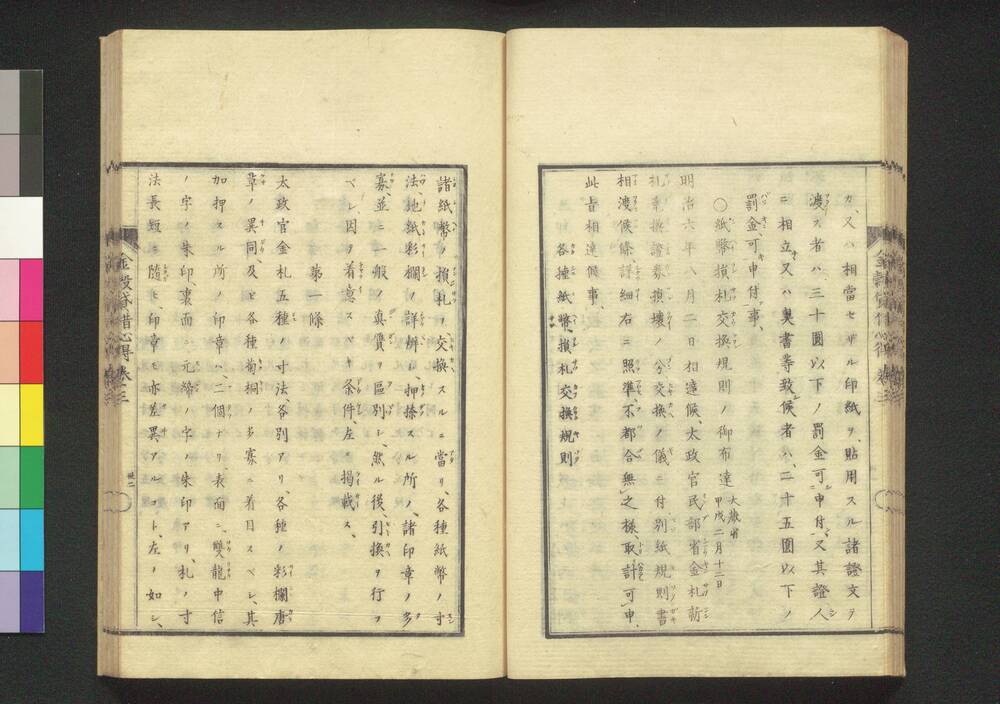 カ、又ハ相當セザル印紙ヲ、貼用スル諸證文ヲ
渡ス者ハ、三十圓以下ノ罰金可申付、又其證人
ニ相立、又ハ奧書等致候者ハ、二十五圓以下ノ
罰金可申付事、
〇紙幣損札交換規則ノ御布達 大藏省 甲戌二月十二日
明治六年八月二日相達候、太政官民部省金札新
札乗換證券損壊ノ分交換ノ儀ニ付別紙規則書
相渡候條、詳細右ニ照準、不都合無之様、取計可申、
此旨相達候事、
各種紙幣損札交換規則
諸紙幣ノ損札ノ交換スルニ當リ、各種紙幣ノ寸
法、地紙彩欄ノ詳辨シ、押捺スル所ノ諸印章ノ多
寡、並ニ一般ノ真贋ヲ區別シ、然ル後、引換ヲ行フ
ベシ、因テ着意スベキ条件、左ニ掲載ス、
第一條
太政官金札五種ノ寸法、各別アリ、各種ノ彩欄唐
草ノ異同、及ヒ各種菊桐ノ多寡ニ着目スベシ、其
加押スル所ノ印章ハ二個ナリ、表面ニ、雙龍中信
ノ字ノ朱印裏面ニ、元締ノ字ノ朱印アリ、札ノ寸
法長短ニ随ヒ印章モ亦差異アルコト、左ノ如シ、
金穀貸借心得 巻三
卅二